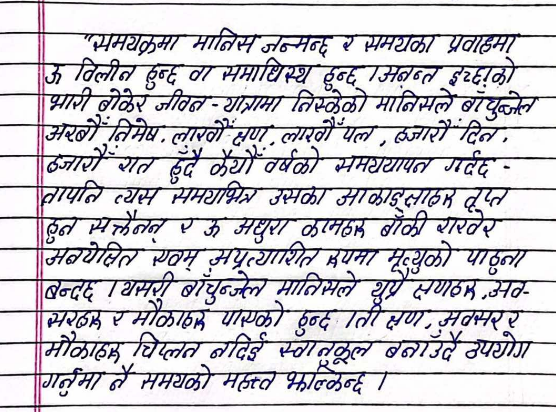 "समयक्रममा मानिस जन्मन्छ र समयका प्रवाहमा
ऊ विलीन हुन्छ वा समाधिस्थ हुन्छ । अनन्त इच्छाको
भारी बोकेर जीवन-यात्रामा निस्केको मानिसले बाँचुन्जेल
अरबौँ निमेष, लाखौँ क्षण, लाखौँ पल, हजारौँ दिन,
हजारौँ रात हुँदै कैयौँ वर्षको समययापन गर्दछ -
तापनि त्यस समयभित्र उसका आकाङ्क्षाहरू तृप्त
हुन सक्तैनन् र ऊ अधुरा कामहरू बाँकी राखेर
अनपेक्षित एवम् अप्रत्याशित रूपमा मृत्युको पाहुना
बन्दछ । यसरी बाँचुन्जेल मानिसले थुप्रै क्षणहरू, अव-
सरहरू र मौकाहरू पाएको हुन्छ । ती क्षण, अवसर र
मौकाहरू चिप्लन नदिई स्वानुकूल बनाउँदै उपयोग
गर्नुमा नै समयको महत्त्व झल्किन्छ ।